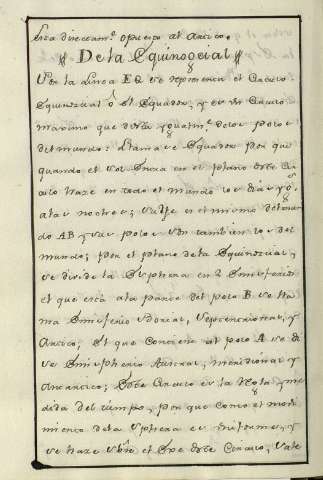 esta directamte. opuesto al Artico.
De la Equinoccial
Por la Linea EQ se representa el Circulo
Equinoccial ô el Equador, y es un Circulo
maximo que dista ygualmte. de los polos
del mundo: Llamase Equador por que
quando el Sol entra en el plano deste Cir
culo haze en todo el mundo los dias yg.s
a las noches; Su Exe es el mismo del mun
do AB y sus polos son tambien los del
mundo; por el plano de la Equinoccial
se divide la Sphera en 2 Emisferios
el que está a la parte del polo B. se lla
ma Emisferio Boreal, Septentrional, y
Artico; El que Contiene al polo A se di
ze Emispherio Austral, meridional, y
Antartico; Este Circulo es la Regla, y me
dida del tiempo, por que Como el movi
miento de la Sphera es uniforme, y
se haze sbre el Exe deste Circulo, Sale